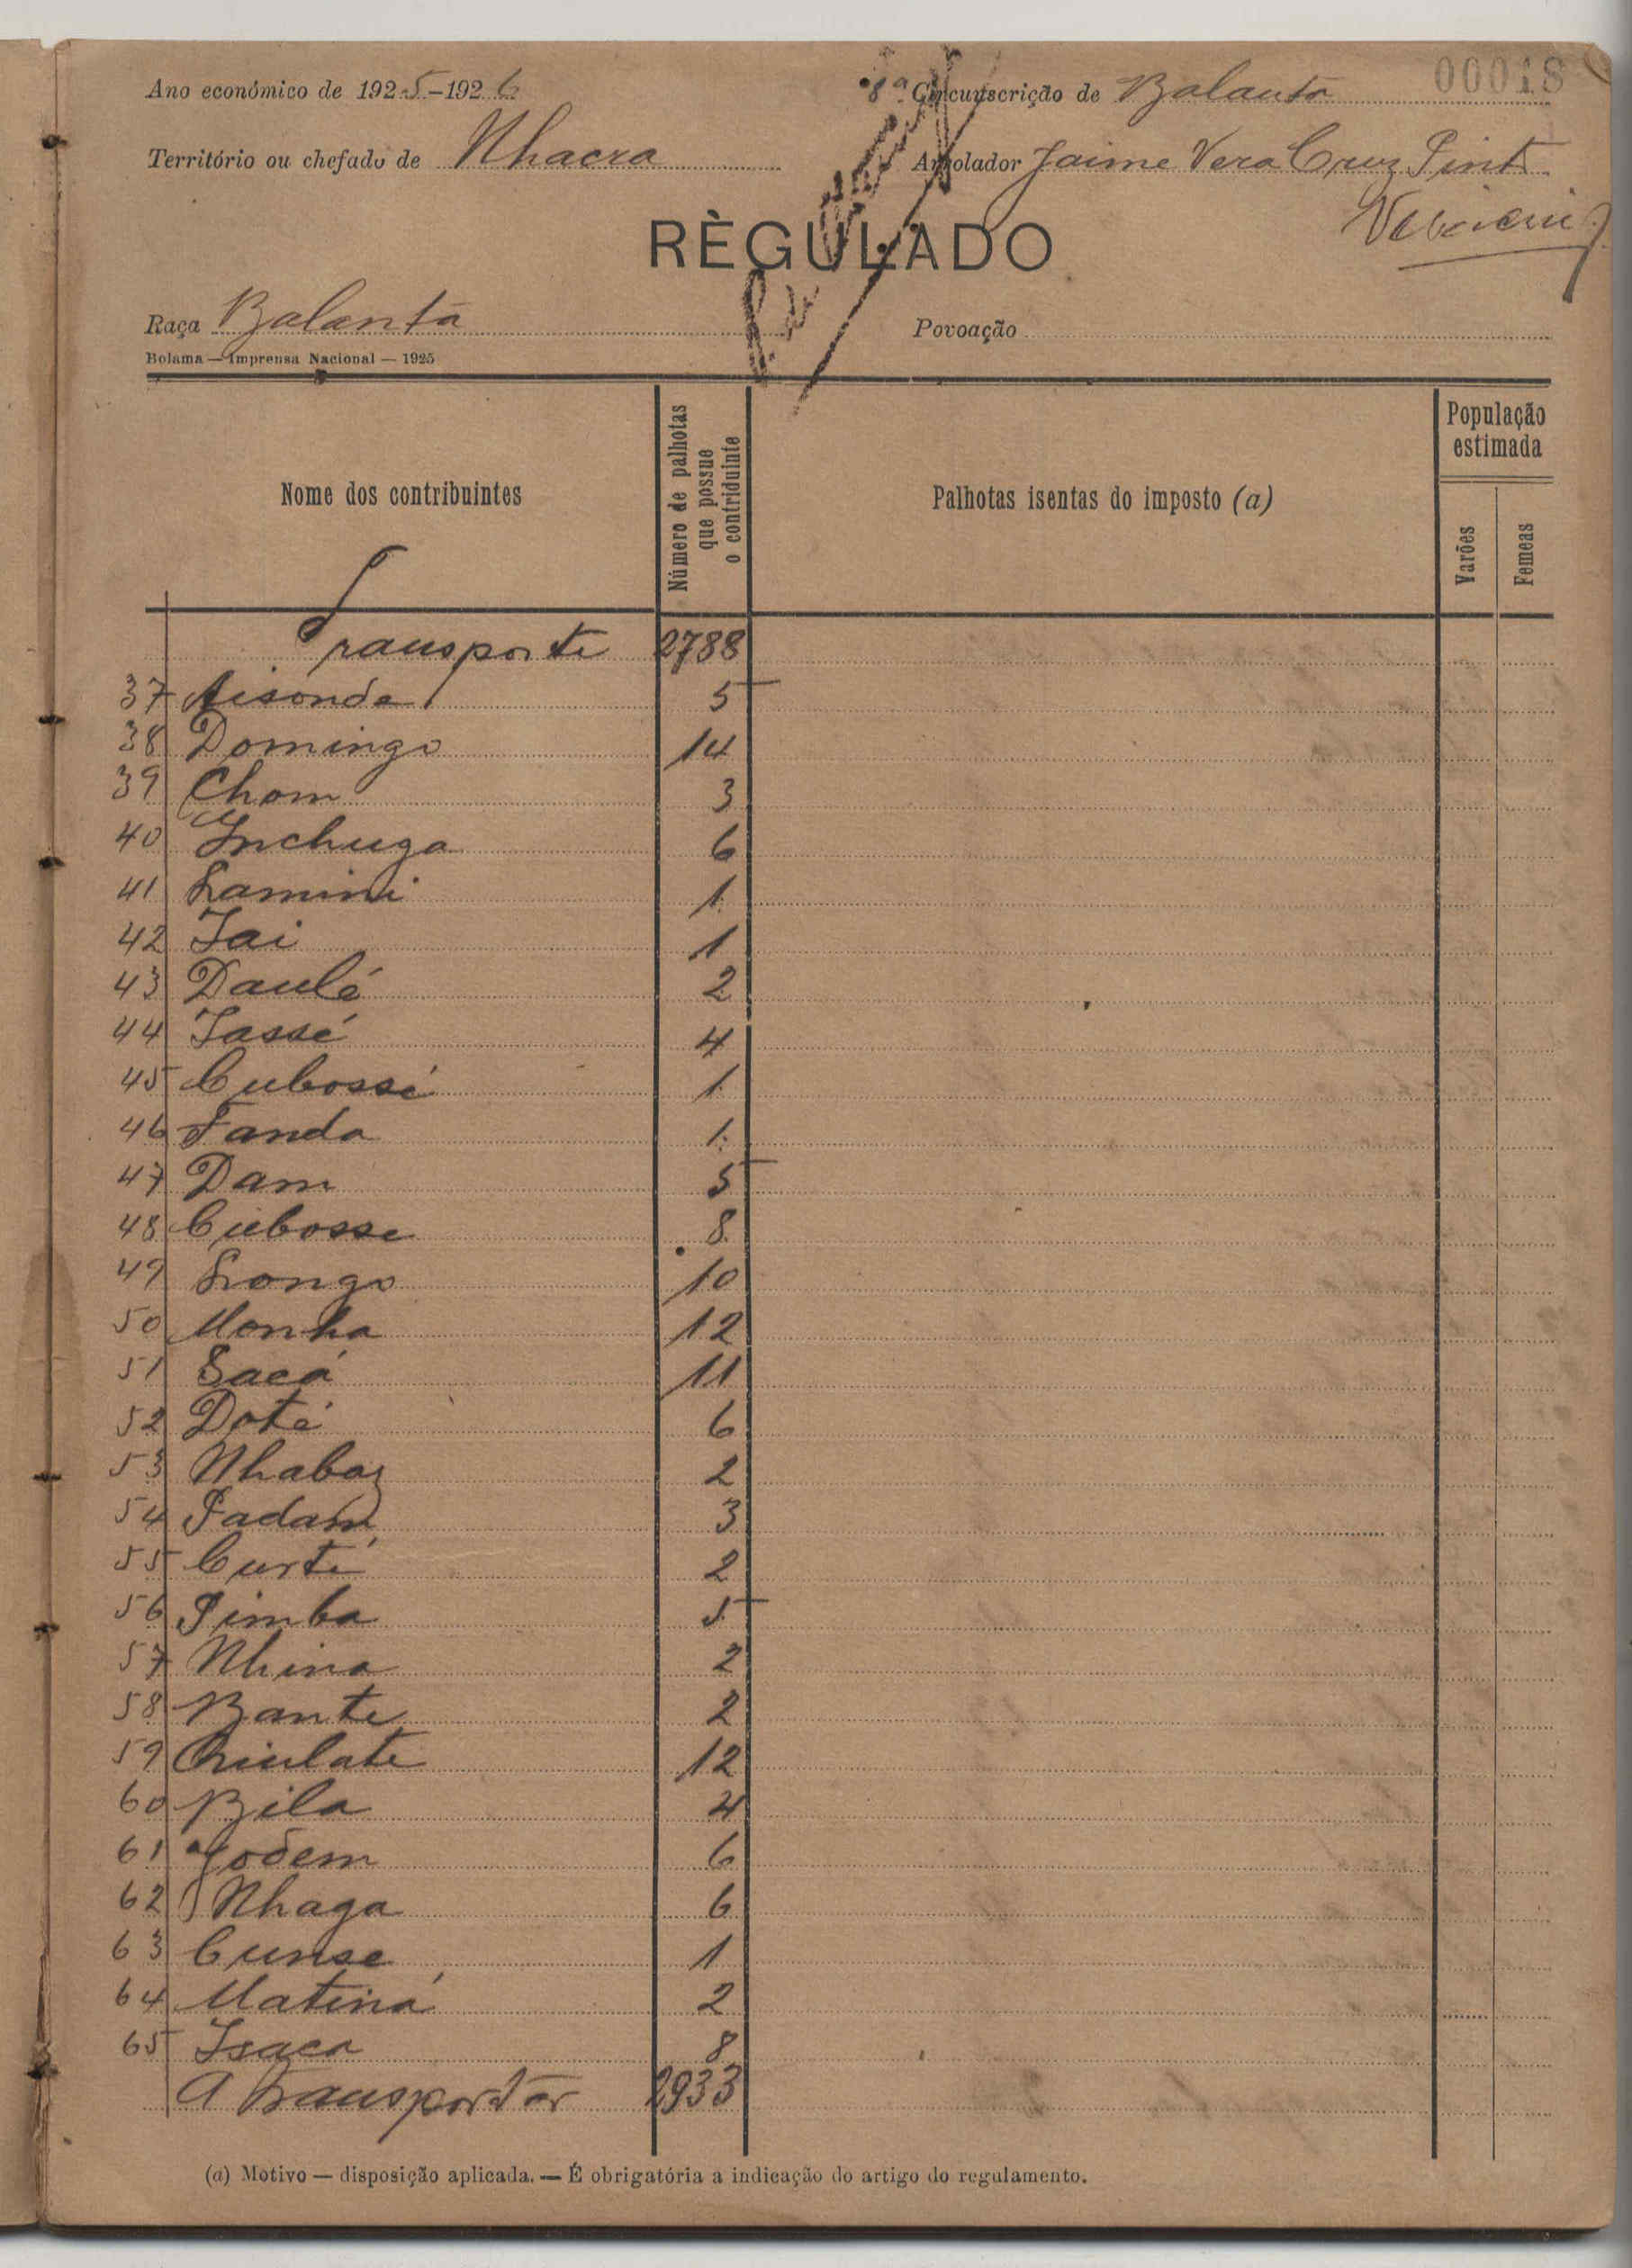 00018
Ano económico de 1925-1926
8ª Circunscrição de Balanta
Território ou chefado de Nhacra
Arrolador Jaime Vera Cruz Pinto
RÈGULADO
Raça Balanta
Povoação
Bolama — Imprensa Nacional — 1925
Nome dos contribuintes
Número de palhotas que possue o contriduinte
Palhotas isentas do imposto (a)
População estimada
Varões
Femeas
Transporte 2788
37 Aisonda 5
38 Domingo 14
39 Chom 3
40 Inchuga 6
41 Lamini 1
42 Jai 1
43 Daulé 2
44 Jassé 4
45 Cubossé 1
46 Fanda 1
47 Dam 5
48 Cubosse 8
49 Longo 10
50 Monha 12
51 Sacá 11
52 Doté 6
53 Nhabaz 2
54 Padam 3
55 Curté 2
56 Pimba 5
57 Nhina 2
58 Bante 2
59 Quilate 12
60 Bila 4
61 Jodem 6
62 Nhaga 6
63 Cunse 1
64 Matiná 2
65 Isaca 8
A transportar 2933
(a) Motivo — disposição aplicada. — É obrigatória a indicação do artigo do regulamento.